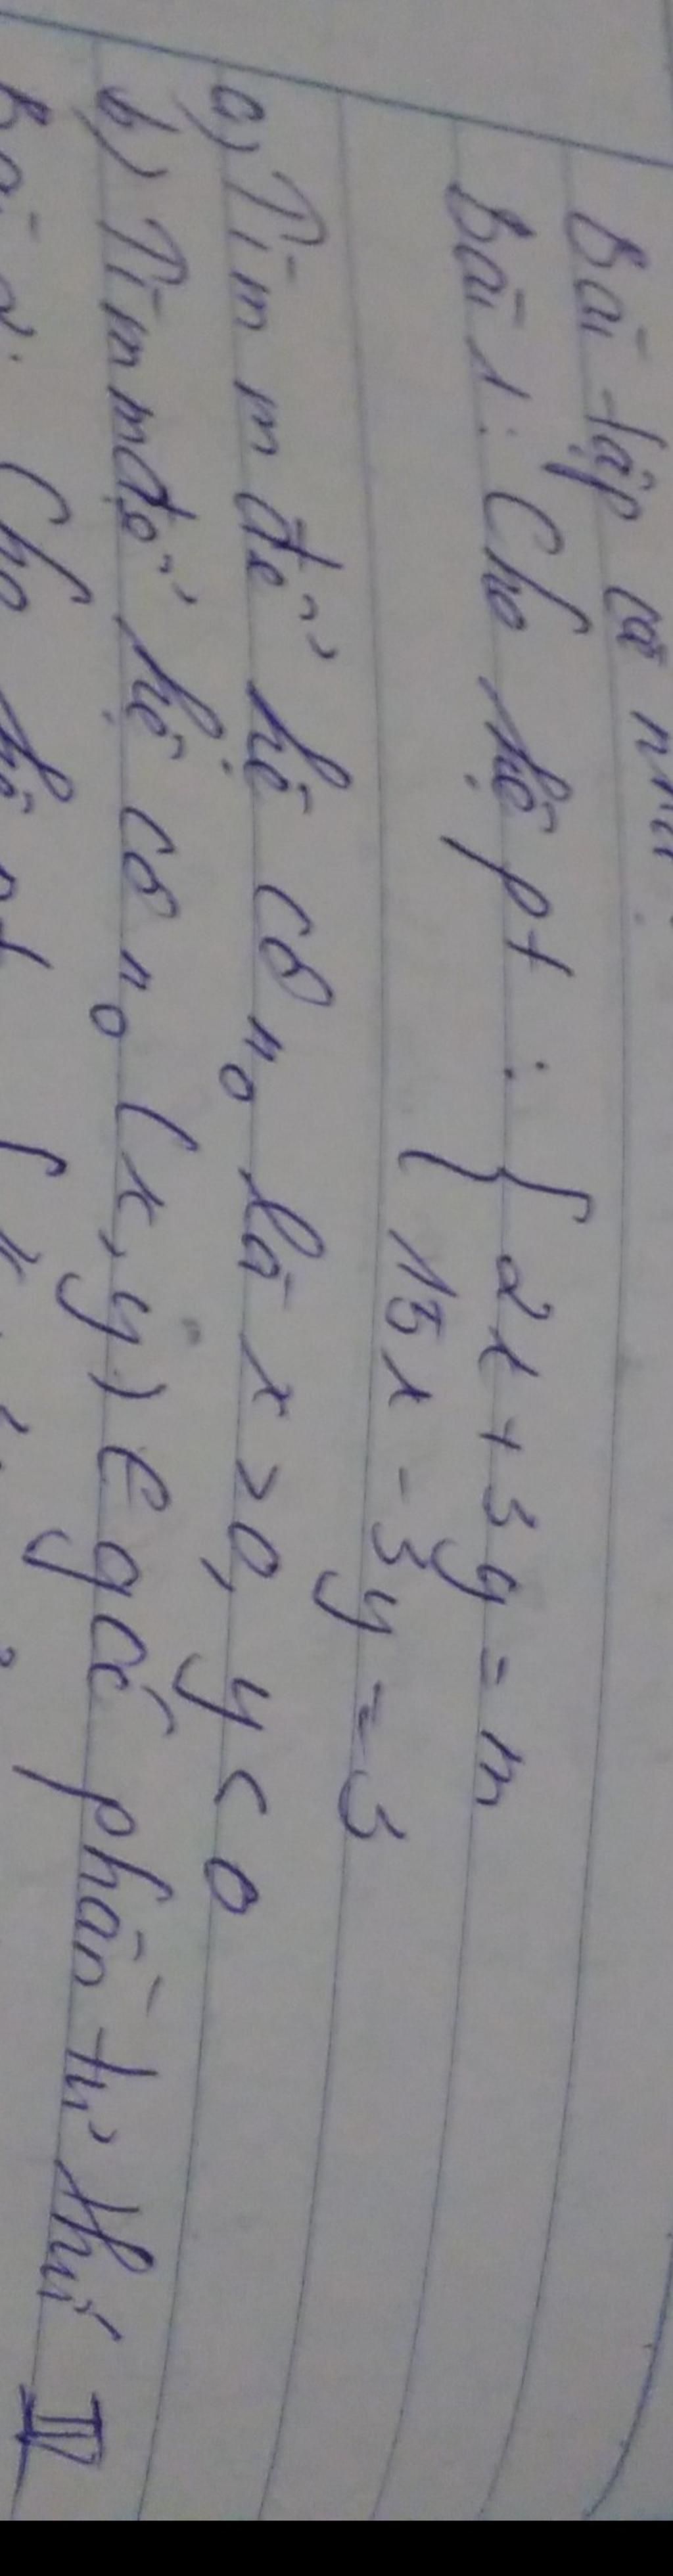 Bài tập về nhà:
Bài 1: Cho hệ pt : { 2x + 3y = m
15x - 3y = 3
a) Tìm m để hệ có n₀ là x > 0, y < 0
b) Tìm m để hệ có n₀ (x, y) ∈ góc phần tư thứ IV
Bài 2: Cho hệ pt {